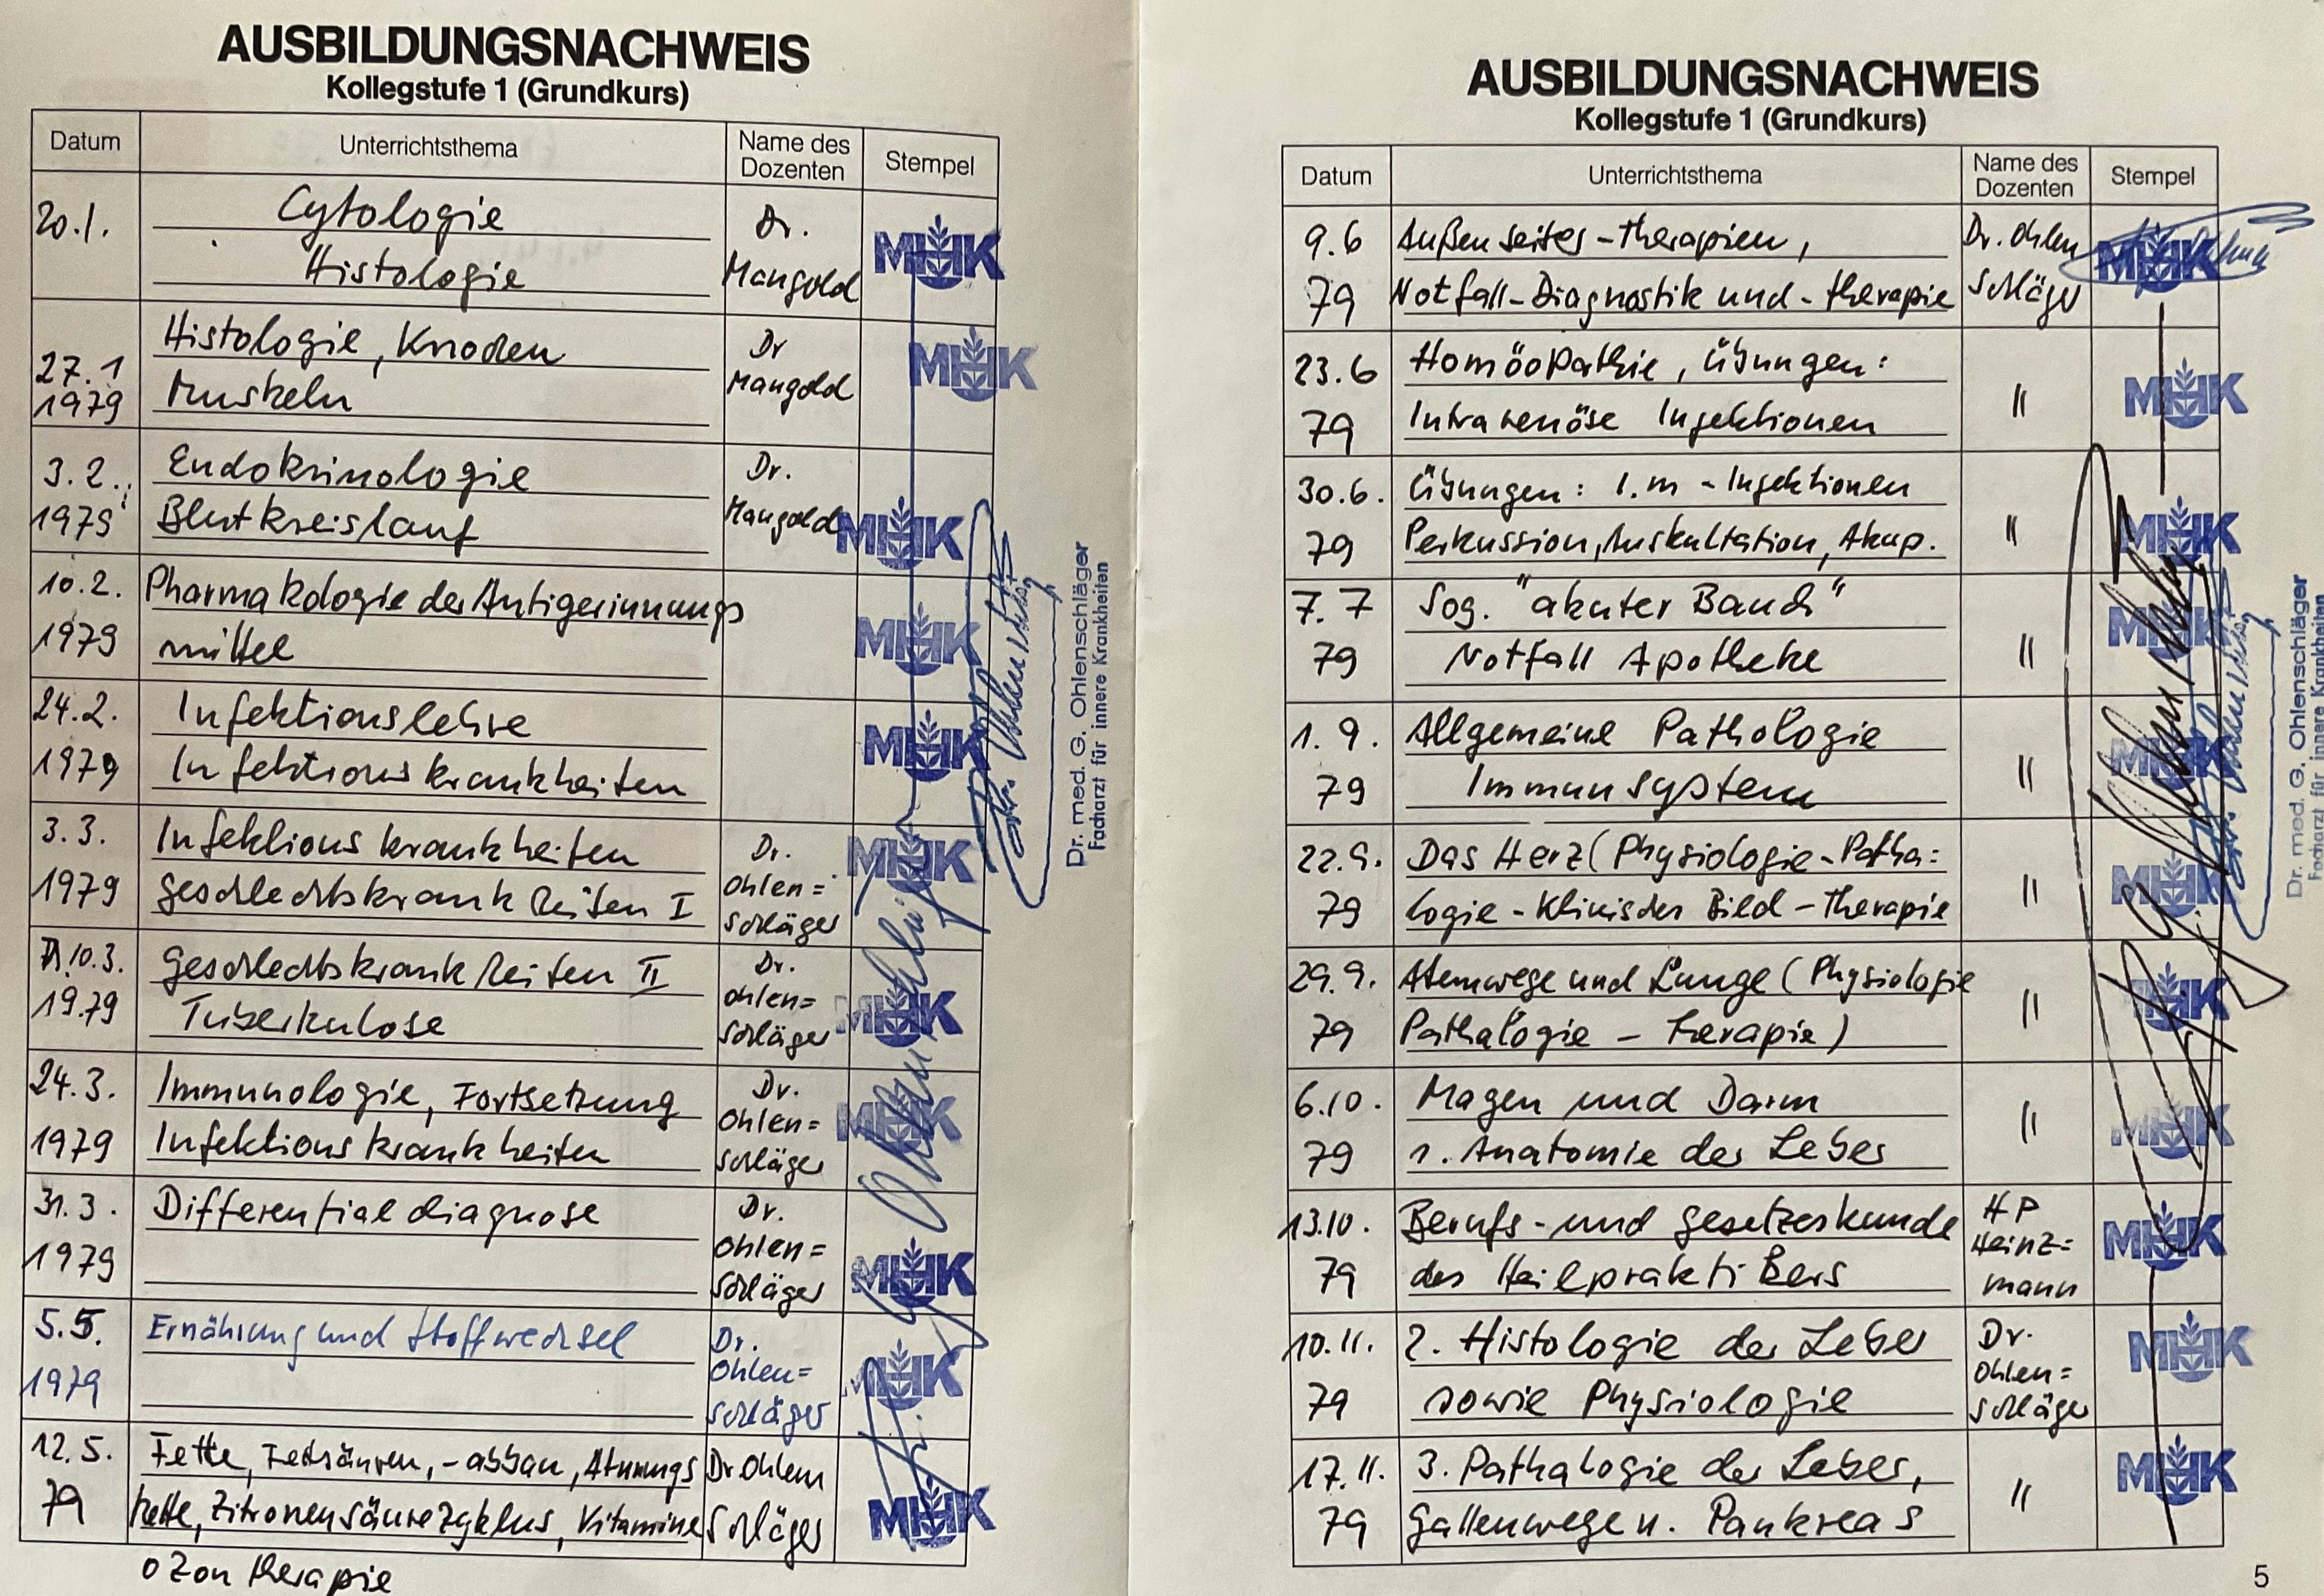 AUSBILDUNGSNACHWEIS
Kollegstufe 1 (Grundkurs)
Datum Unterrichtsthema Name des Dozenten Stempel
20.1. Cytologie Dr.
Histologie Mangold
MHK
27.1 Histologie, Knochen Dr
1979 Muskeln Mangold
MHK
3.2. Endokrinologie Dr.
1979 Blutkreislauf Mangold
MHK
10.2. Pharmakologie der Antigerinnungs
1979 mittel
MHK
24.2. Infektionslehre
1979 Infektionskrankheiten
MHK
3.3. Infektionskrankheiten Dr.
1979 Geschlechtskrankheiten I Ohlen=
schläger
MHK
10.3. Geschlechtskrankheiten II Dr.
1979 Tuberkulose Ohlen=
schläger
MHK
24.3. Immunologie, Fortsetzung Dr.
1979 Infektionskrankheiten Ohlen=
schläger
MHK
31.3. Differentialdiagnose Dr.
1979 Ohlen=
schläger
MHK
5.5. Ernährung und Stoffwechsel Dr.
1979 Ohlen=
schläger
MHK
12.5. Fette, Fettsäuren, -abbau, Atmungs Dr Ohlen
79 kette, Zitronensäurezyklus, Vitamine schläger
MHK
Ozontherapie
Dr. med. G. Ohlenschläger
Facharzt für innere Krankheiten
AUSBILDUNGSNACHWEIS
Kollegstufe 1 (Grundkurs)
Datum Unterrichtsthema Name des Dozenten Stempel
9.6 Außenseiter-Therapien, Dr. Ohlen
79 Notfall-Diagnostik und -therapie schläger
MHK
23.6 Homöopathie, Übungen: "
79 Intravenöse Injektionen
MHK
30.6. Übungen: I.m - Injektionen "
79 Perkussion, Auskultation, Akup.
MHK
7.7 Sog. "akuter Bauch"
79 Notfall Apotheke "
MHK
1.9. Allgemeine Pathologie
79 Immunsystem "
MHK
22.9. Das Herz (Physiologie-Patho=
79 logie-Klinisches Bild-Therapie "
MHK
29.9. Atemwege und Lunge (Physiologie
79 Pathologie - Therapie) "
MHK
6.10. Magen und Darm "
79 1. Anatomie der Leber
MHK
13.10. Berufs- und Gesetzeskunde HP
79 des Heilpraktikers Heinz=
mann
MHK
10.11. 2. Histologie der Leber Dr.
79 sowie Physiologie Ohlen=
schläger
MHK
17.11. 3. Pathologie der Leber, "
79 Gallenwege u. Pankreas
MHK
Dr. med. G. Ohlenschläger
Facharzt für innere Krankheiten
5